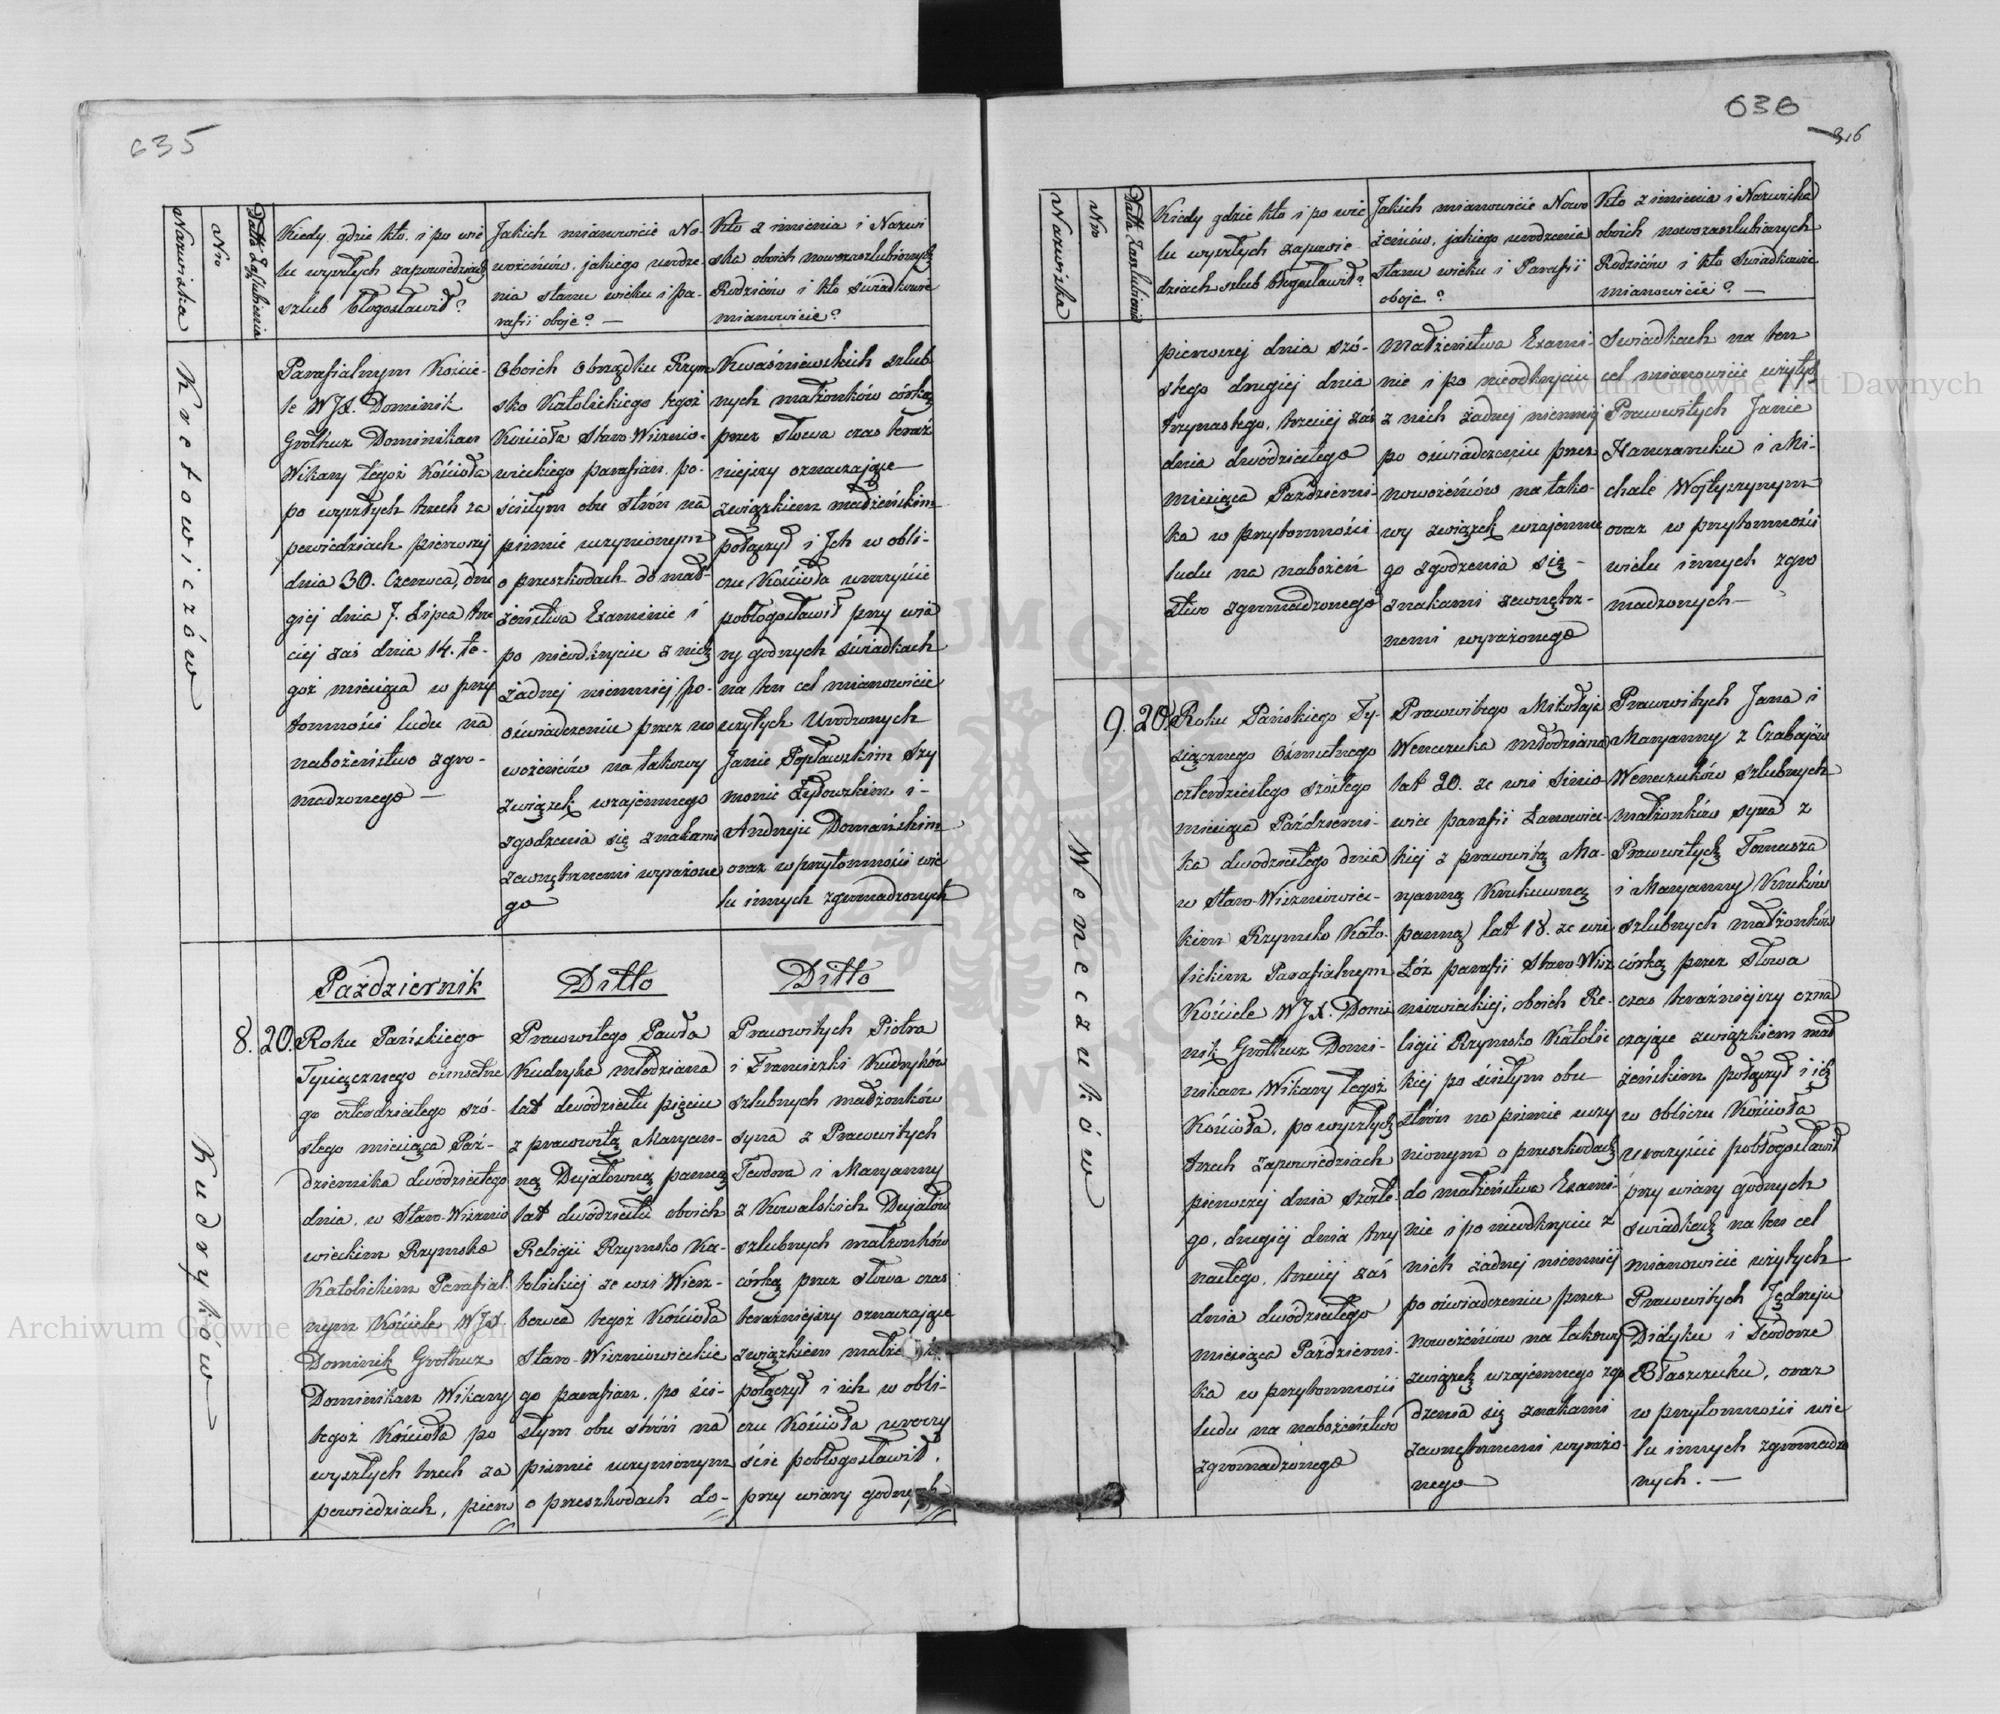 635
Nazwiska
Nro
Datta Zaszlubienia
Kiedy, gdzie kto, i po wie
lu wyszłych zapowiedziach
szlub błogosławił?
Jakich mianowicie No-
wożeńców, jakiego urodze-
nia stanu wieku i pa-
rafii oboje? —
Kto z imienia i Nazwi
ska oboich nowozaszlubionych
Rodziców i kto świadkowie
mianowicie?
Kretowiczów
Parafialnym Koście-
le WJX. Dominik
Grothuz Dominikan
Wikary tegoż Kościoła
po wyszłych trzech za
powiedziach pierwszej
dnia 30. Czerwca, dru
giej dnia 7. Lipca trze
ciej zaś dnia 14. te-
goż miesiąca w przy
tomności ludu na
nabożeństwo zgro-
madzonego —
Oboich Obrządku Rzym
sko Katolickiego tegoż
Kościoła Staro Wiśnio-
wieckiego parafian. po-
ścisłym obu stron na
piśmie uczynionym
o przeszkodach do mał-
żeństwa Examinie i
po nieodkryciu z nich
żadnej niemniej po-
oświadczeniu przez no
wożeńców na takowy
związek wzajemnego
zgodzenia się znakami
zewnętrznemi wyrażone
go
Kwaśniewskich szlub
nych małżonków córką
przez słowa czas teraz
niejszy oznaczające
związkiem małżeńskim
połączył i Ich w obli-
czu Kościoła uroczyście
pobłogosławił przy wia
ry godnych świadkach
na ten cel mianowicie
użytych Urodzonych
Janie Popławskim Szy
monie Żydowskim i-
Andrzeju Domańskim
oraz w przytomności wie
lu innych zgromadzonych
Październik
Ditto
Ditto
Kudryków
8.
20.
Roku Pańskiego
Tysiącznego ośmsetne
go czterdziestego szó-
stego miesiąca Paź-
dziernika dwódziestego
dnia, w Staro-Wiśnio
wieckim Rzymsko
Katolickim Parafial.
nym Kościele WJX
Dominik Grothuz
Dominikan Wikary
tegoż Kościoła po
wyszłych trzech za
powiedziach, pierw
Prawowitego Pawła
Kudryka młodziana
lat dwódziestu pięciu
z prawowitą Maryan-
ną Dujałowną panną
lat dwódziestu oboich
Religii Rzymsko Ka-
tolickiej ze wsi Wierz-
bowca tegoż Kościoła
Staro-Wiśniowieckie
go parafian. po ści-
słym obu stron na
piśmie uczynionym
o przeszkodach do-
Prawowitych Piotra
i Franciszki Kudryków
szlubnych małżonków
syna z Prawowitych
Teodora i Maryanny
z Kowalskich Dujałów
szlubnych małżonków
córką przez słowa czas
teraźniejszy oznaczające
związkiem małże
połączył i ich w obli-
czu Kościoła uroczy
ście pobłogosławił,
przy wiary godnych
636
316
Nazwiska
Nro
Datta Zaszlubienia
Kiedy gdzie kto i po wie
lu wyszłych zapowie-
dziach szlub błogosławił?
Jakich mianowicie Nowo
żeńców, jakiego urodzenia
stanu wieku i Parafii
oboje?
Kto z imienia i Nazwiska
oboich nowozaszlubionych
Rodziców i kto Swiadkowie
mianowicie? —
pierwszej dnia szó-
stego drugiej dnia
trzynastego, trzeciej zaś
dnia dwódziestego
miesiąca Październi-
ka w przytomności
ludu na nabożeń
stwo zgromadzonego
małżeństwa Exami-
nie i po nieodkryciu
z nich żadnej niemniej
po oświadczeniu przez
nowożeńców na tako-
wy związek wzajemne
go zgodzenia się -
znakami zewnętrz-
nemi wyrażonego
Swiadkach na ten
cel mianowicie użytych
Prawowitych Janie
Hanczaruku i Mi-
chale Wojtyszynym
oraz w przytomności
wielu innych zgro
madzonych —
Wenczuków
9.
20.
Roku Pańskiego Ty-
siącznego Ośmsetnego
czterdziestego szóstego
miesiąca Październi-
ka dwódziestego dnia
w Staro-Wiśniowiec-
kim Rzymsko Kato-
lickim Parafialnym
Kościele WJX. Domi
nik Grothuz Domi-
nikan Wikary tegoż
Kościoła, po wyszłych
trzech zapowiedziach
pierwszej dnia szóste-
go, drugiej dnia trzy
nastego, trzeciej zaś
dnia dwódziestego
miesiąca Październi-
ka w przytomności
ludu na nabożeństwo
zgromadzonego
Prawowitego Mikołaja
Wenczuka młodziana
lat 20. ze wsi Sinio-
wiec parafii Łanowiec-
kiej z prawowitą Ma-
ryanną Krukówną
panną lat 18. ze wsi
Łóz parafii Staro Wisz
niowieckiej, oboich Re-
ligii Rzymsko Katolic
kiej po ścisłym obu
stron na piśmie uczy
nionym o przeszkodach
do małżeństwa Exami-
nie i po nieodkryciu z
nich żadnej niemniej
po oświadczeniu przez
nowożeńców na takowy
związek wzajemnego zgo
dzenia się znakami
zewnętrznemi wyrażo-
nego
Prawowitych Jana i
Maryanny z Czabajów
Wenczuków szlubnych
małżonków syna z
Prawowitych Tomasza
i Maryanny Kruków
szlubnych małżonków
córką przez Słowa
czas teraźniejszy ozna
czające związkiem mał
żeńskim połączył i ich
w obliczu Kościoła
uroczyście pobłogosławił
przy wiary godnych
Swiadkach na ten cel
mianowicie użytych
Prawowitych Jędrzeju
Didyku i Teodorze
Błaszczuku, oraz
w przytomności wie
lu innych zgromadzo
nych. —
Archiwum Główne Akt Dawnych
Archiwum Główne Akt Dawnych